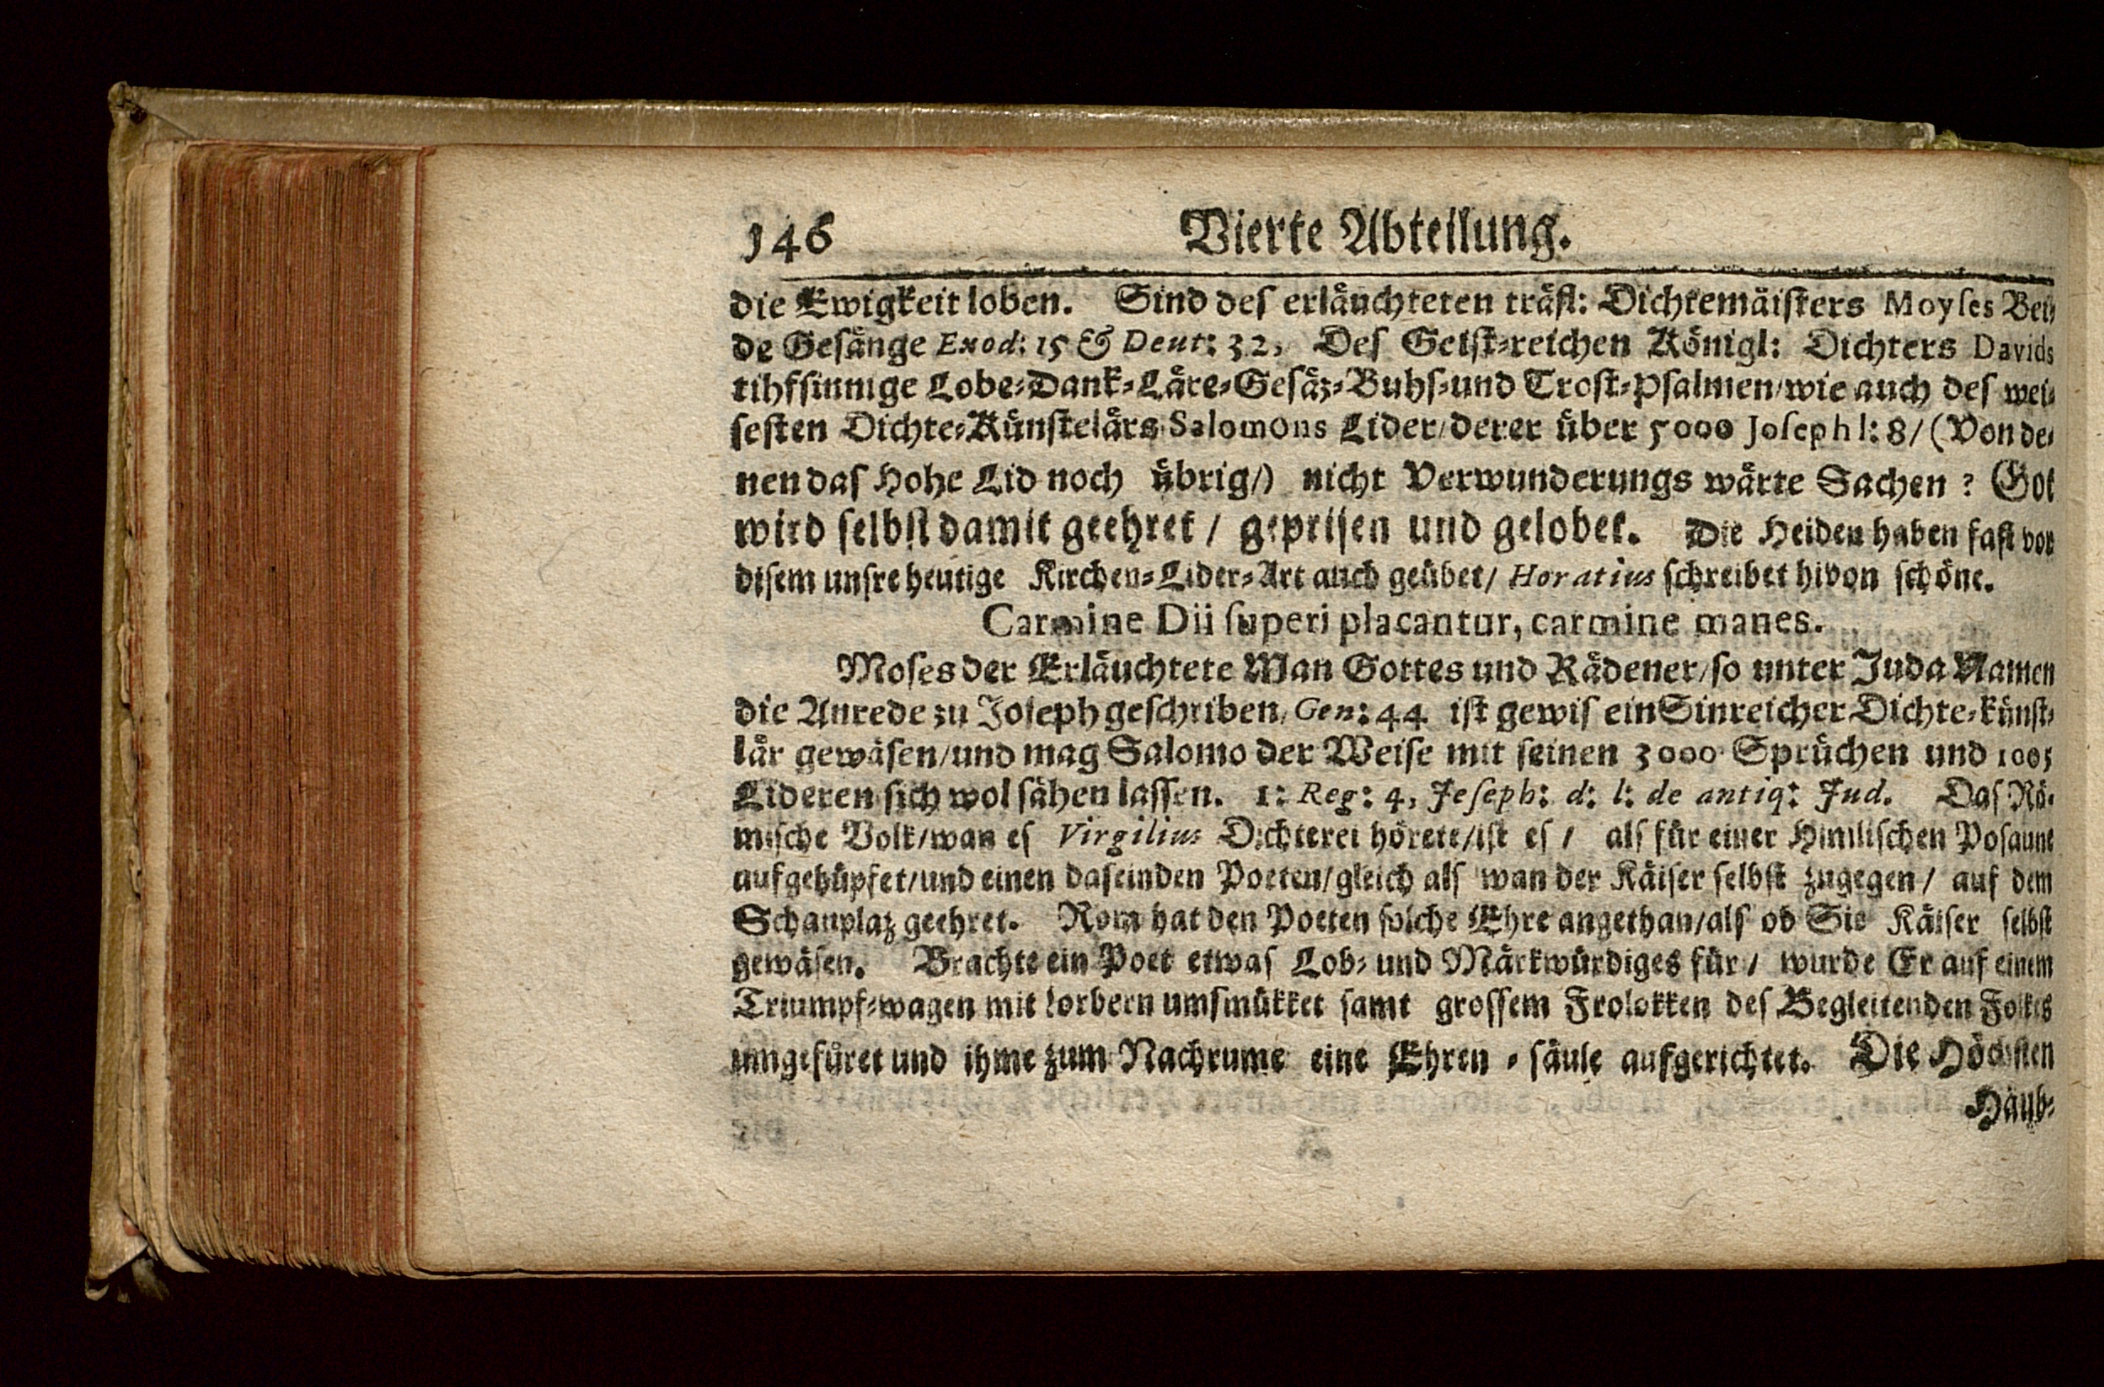 146 Vierte Abteilung.
die Ewigkeit loben. Sind des erläuchteten träfl: Dichtemäisters Moyses Bei-
de Gesänge Exod: 15 & Deut: 32, Des Geist-reichen Königl: Dichters Davids
tihfsinnige Lobe-Dank-Läre-Gesäz-Buhs-und Trost-Psalmen/wie auch des wei-
sesten Dichte-Künstelärs Salomons Lider/derer über 5000 Joseph l: 8/ (Von de-
nen das Hohe Lid noch übrig/) nicht Verwunderungs wärte Sachen? Got
wird selbst damit geehret / geprisen und gelobet. Die Heiden haben fast vor
disem unsre heutige Kirchen-Lider-Art auch geübet/ Horatius schreibet hivon schöne.
Carmine Dii superi placantur, carmine manes.
Moses der Erläuchtete Man Gottes und Rädener/so unter Juda Namen
die Anrede zu Joseph geschriben/Gen: 44 ist gewis ein Sinreicher Dichte-künst-
lär gewäsen/und mag Salomo der Weise mit seinen 3000 Sprüchen und 1005
Lideren sich wol sähen lassen. 1: Reg: 4, Joseph: d: l: de antiq: Jud. Das Rö-
mische Volk/wan es Virgilius Dichterei hörete/ist es / als für einer Himlischen Posaune
aufgehüpfet/und einen daseinden Poeten/gleich als wan der Käiser selbst zugegen/ auf dem
Schauplaz geehret. Rom hat den Poeten solche Ehre angethan/als ob Sie Käiser selbst
gewäsen. Brachte ein Poet etwas Lob- und Märkwürdiges für/ wurde Er auf einem
Triumpf-wagen mit Lorbern umsmükket samt grossem Frolokken des Begleitenden Folkes
umgefüret und ihme zum Nachrume eine Ehren-säule aufgerichtet. Die Höchsten
Häub-